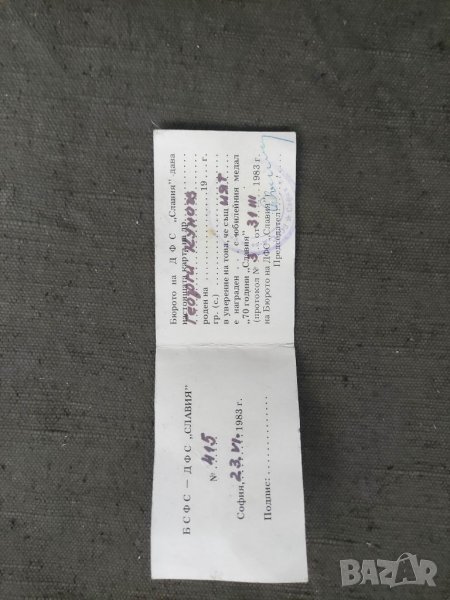 БСФС — ДФС „СЛАВИЯ"
№ 415
София, 23.VI. 1983 г.
Подпис:
Бюрото на ДФС „Славия" дава
настоящата карта на др.
Георги
роден на 19 г.
гр. (с.)
в уверение на това, че същ ият
е награден с юбилейния медал
„70 години „Славия"
(протокол № 3 от 31 III 1983 г.
на Бюрото на ДФС „Славия")
Председател:
BAZAR